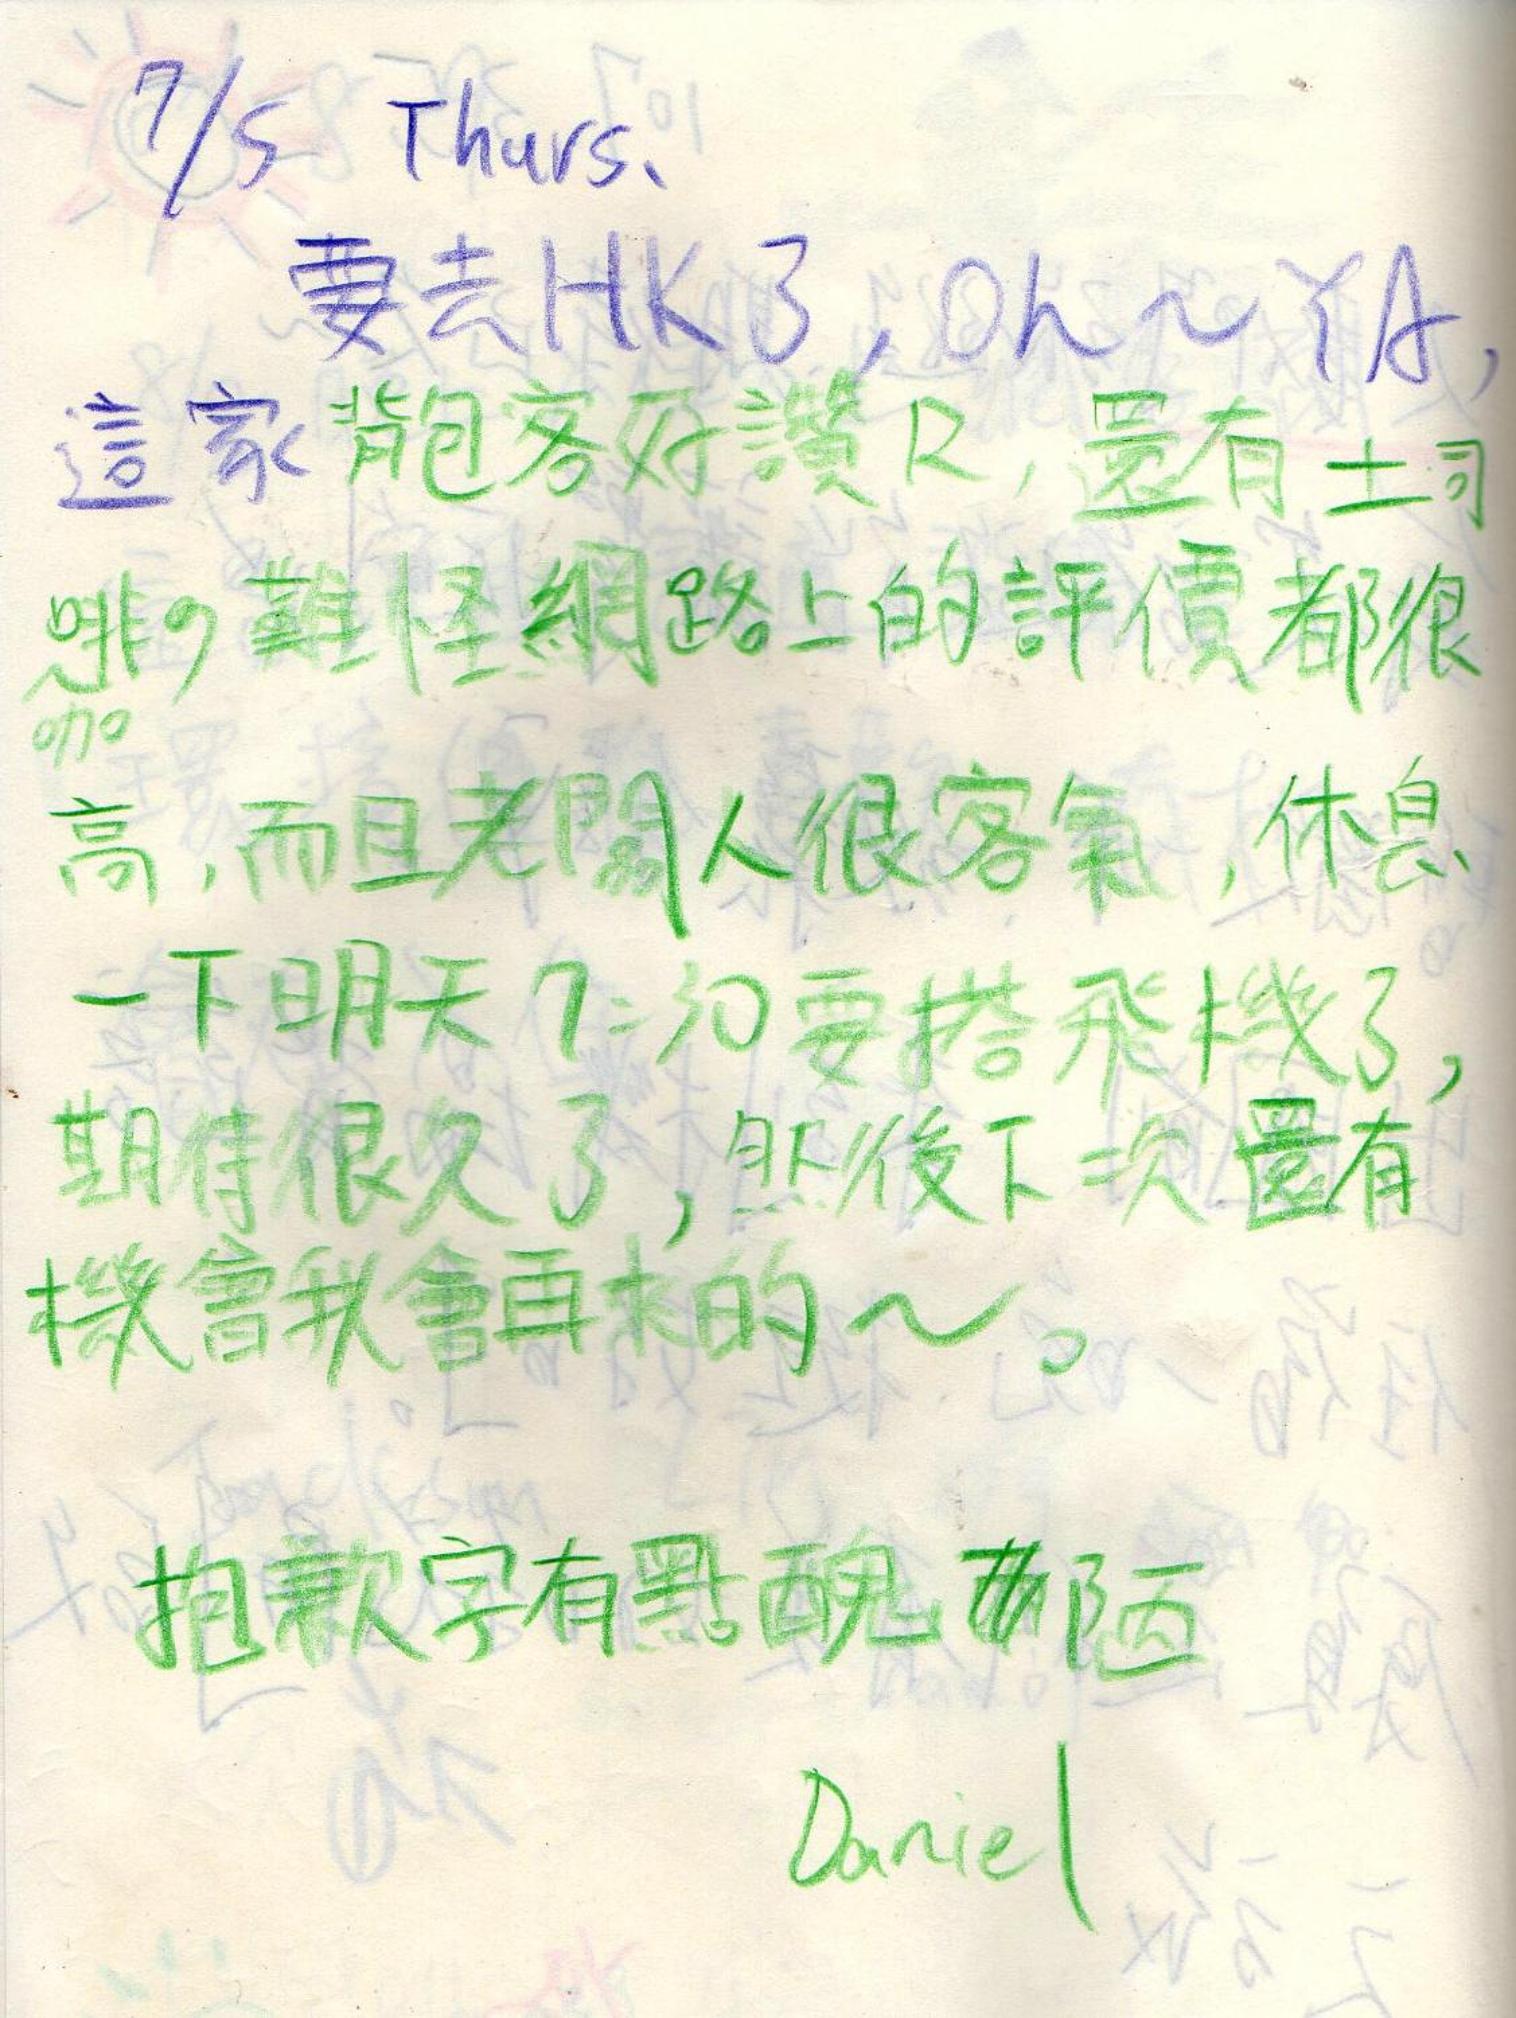 7/5 Thurs.
要去HK了,Oh~YA,
這家背包客好讚ㄖ,還有土司
咖啡,難怪網路上的評價都很
高,而且老闆人很客氣,休息
一下明天7:30要搭飛機了,
期待很久了,然後下次還有
機會我會再來的~。
抱歉字有點醜陋
Daniel